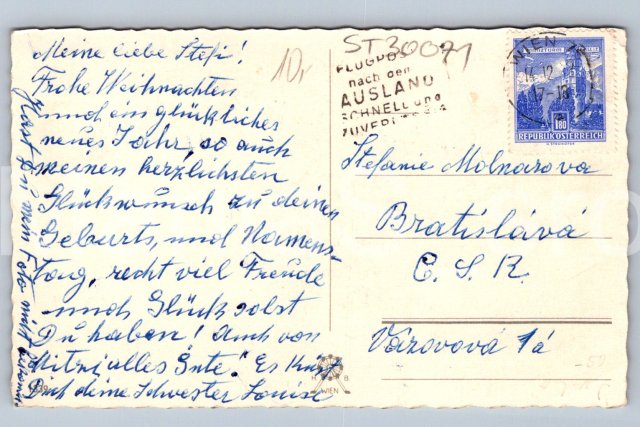 Meine liebe Stefi!
Frohe Weihnachten
und ein glückliches
neues Jahr, so auch
meinen herzlichsten
Glückwunsch zu deinem
Geburts, und Namens-
tag, recht viel Freude
und Glück sollst
Du haben! Auch von
Mitzi alles Gute. Es küsst
Dich deine Schwester Louise
Hast Du mein Foto
10,-
ST30071
FLUGPOST
nach dem
AUSLAND
SCHNELL und
ZUVERLÄSSIG
WIEN
12
17-18
1.80
REPUBLIK ÖSTERREICH
Stefanie Molnarova
Bratislává
C. S. R.
Vázovová 1á
H. B.
WIEN